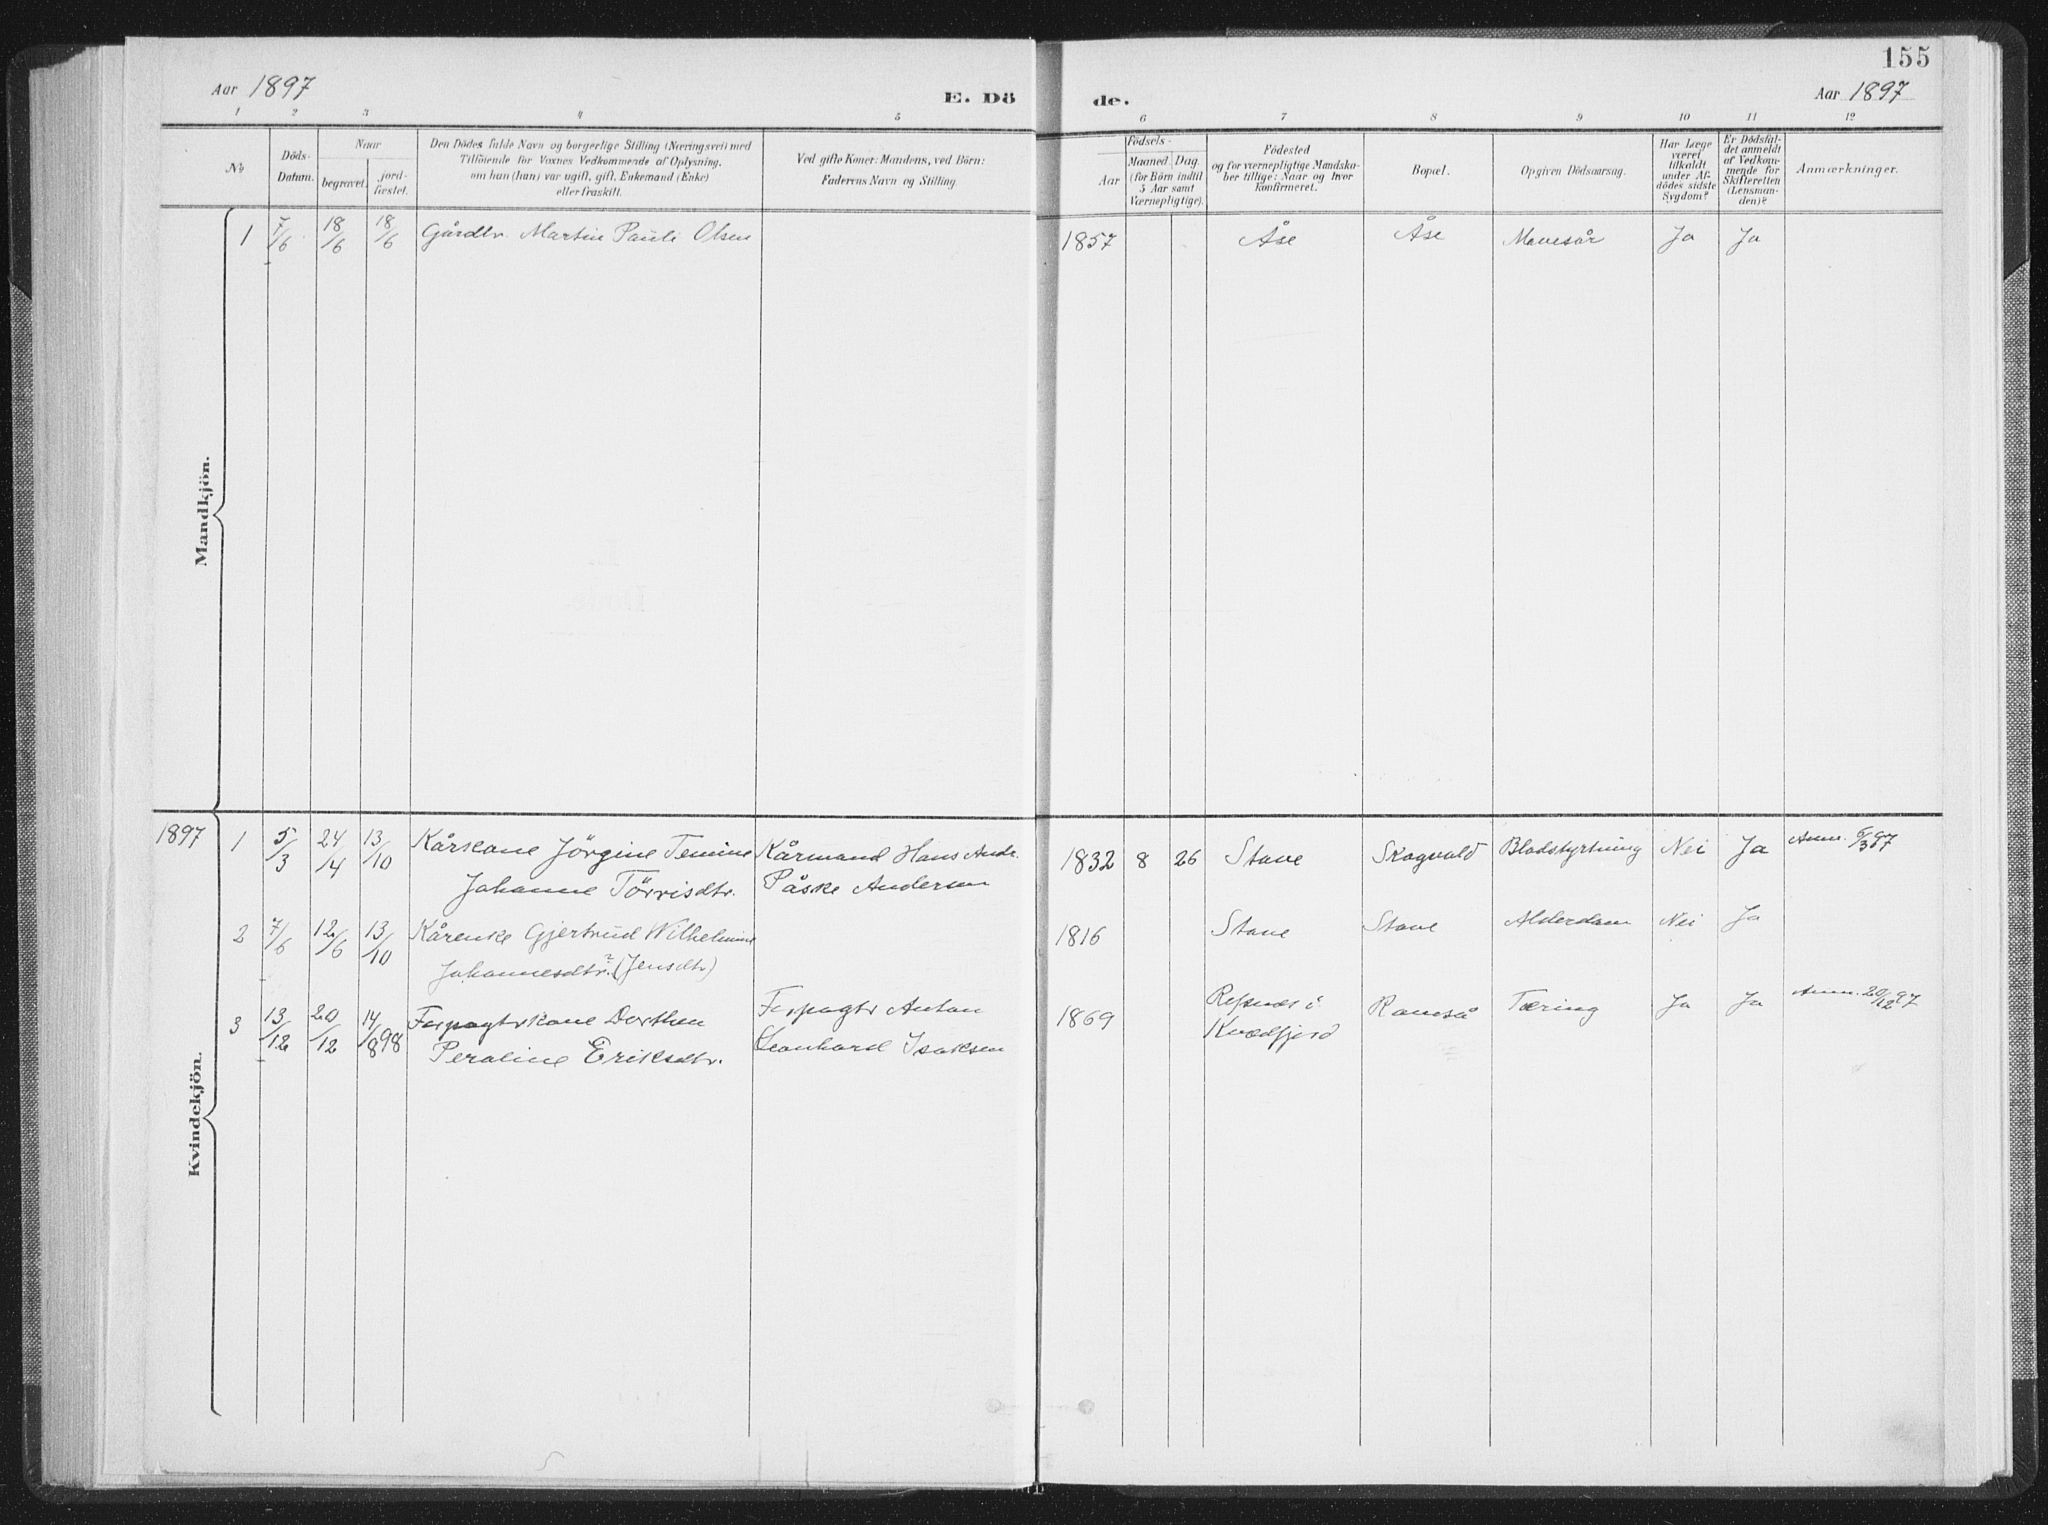 155
Aar 1897
E. Dö
de.
Aar 1897
1 2 3 4 5 6 7 8 9 10 11 12
No
Döds-
Datum.
Naar
begravet.
jord-
fæstet.
Den Dödes fulde Navn og borgerlige Stilling (Næringsvei) med
Tilföiende for Voxnes Vedkommende af Oplysning,
om hun (han) var ugift, gift, Enkemand (Enke)
eller fraskilt.
Ved gifte Koner: Mandens, ved Börn:
Faderens Navn og Stilling
Födsels-
Aar
Maaned Dag
(for Börn indtil
5 Aar samt
Værnepligtige).
Födested
og for værnepligtige Mandska-
ber tillige: Naar og hvor
konfirmeret.
Bopæl.
Opgiven Dödsaarsag.
Har Læge
været
tilkaldt
under Af-
dödes sidste
Sygdom?
Er Dödsfal-
det anmeldt
af Vedkom-
mende for
Skifteretten
(Lensman-
den)?
Anmærkninger.
Mandkjön.
1 7/6 18/6 18/6 Gårdbr. Martin Pauli Olsen 1857 Åse Åse Mavesår Ja Ja
Kvindekjön.
1897 1 5/3 24/4 13/10 Kårkone Jörgine Temine Kårmand Hans Andr. 1832 8 26 Stave Skogvold Blodstyrtning Nei Ja Anm. 6/3 97
Johanne Törrisdtr. Påske Andersen
2 7/6 12/6 13/10 Kårenke Gjertrud Wilhelmine 1816 Stave Stave Alderdom Nei Ja
Johannesdtr.? (Jensdtr)
3 13/12 20/12 14/8 98 Forpagterkone Dorthea Forpagtr Anton 1869 Refsnes i Ramså Tæring Ja Ja Anm. 20/12 97
Peroline Eriksdtr. Leonhard Isaksen Kvædfjord